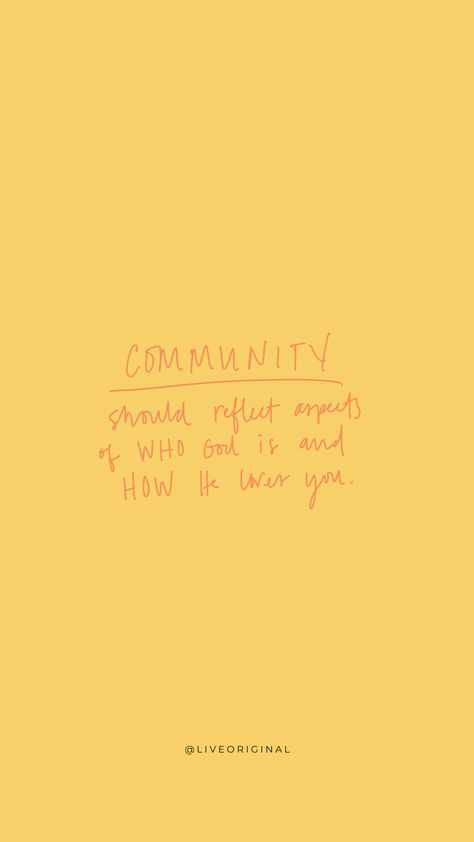 COMMUNITY
should reflect aspects
of WHO God is and
HOW He loves you.
@LIVEORIGINAL